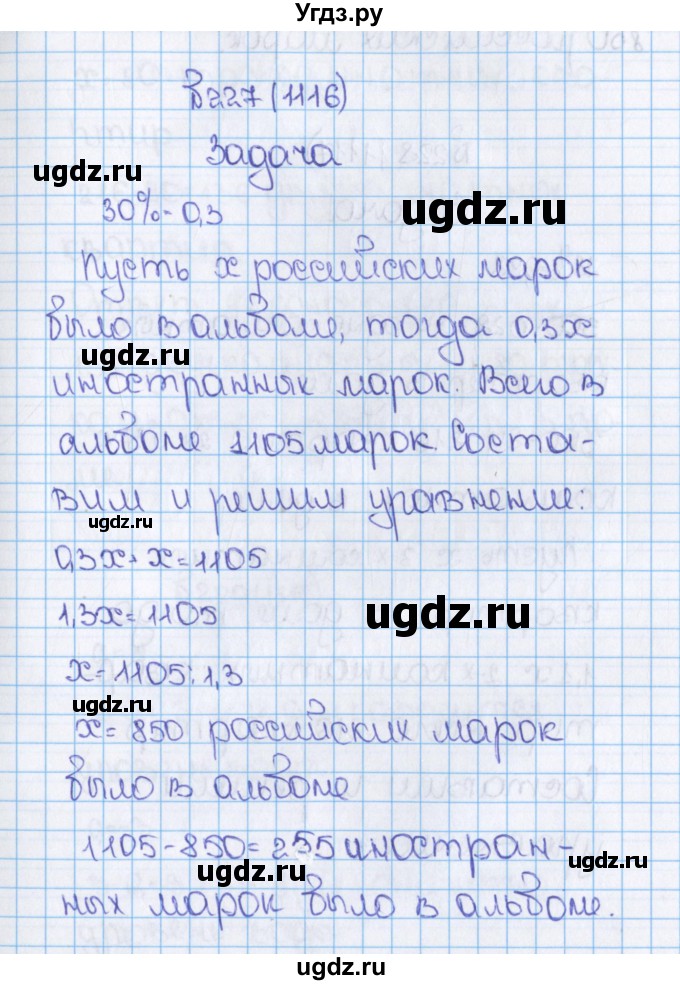 Угдз.ру
В227(1116)
Задача
ugdz.ru
30%-0,3
ugdz.ru
Пусть x российских марок
было в альбоме, тогда 0,3x
ugdz.ru
иностранных марок. Всего в
альбоме 1105 марок. Соста-
вим и решим уравнение:
ugdz.ru
0,3x+x=1105
1,3x=1105
ugdz.ru
x=1105:1,3
ugdz.ru
x=850 российских марок
было в альбоме
1105-850=255 иностран-
ugdz.ru
ных марок было в альбоме.
ugdz.ru